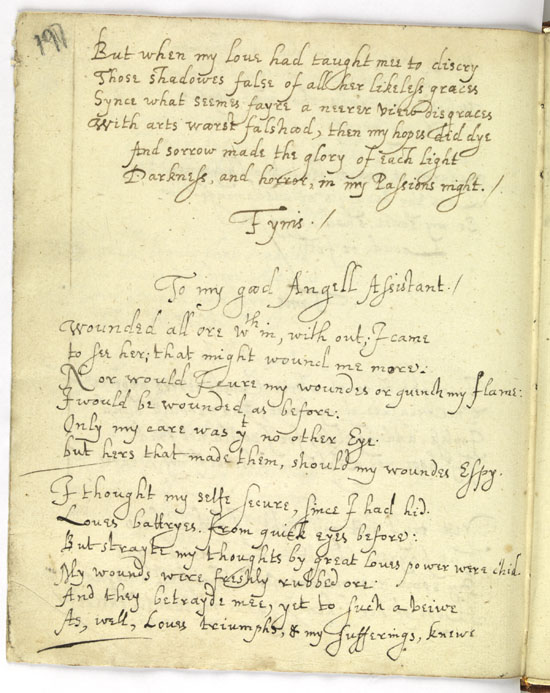 197
But when my Love had taught mee to discry
Those shadowes false of all her likeless graces
Synce what seemes fayre a neerer view disgraces
With arts warst falshood, then my hopes did dye
And sorrow made the glory of each light
Darkness, and horror, in my Passions night. /
Fynis. /
To my good Angell Assistant. /
Wounded all ore wth in, with out, I came
to see her; that might wound me more.
Nor would I cure my woundes or quench my flame:
I would be wounded as before.
Only my care was yt no other Eye
but hers that made them, should my woundes Espy.
I thought my selfe secure, since I had hid
Loves battryes. from quick eyes before:
But strayte my thoughts by great Loves power were chid
My wounds were freshly rubbed ore
And they betrayde mee, yet to such a veiwe
As, well, Loves triumphs, & my sufferings, knewe